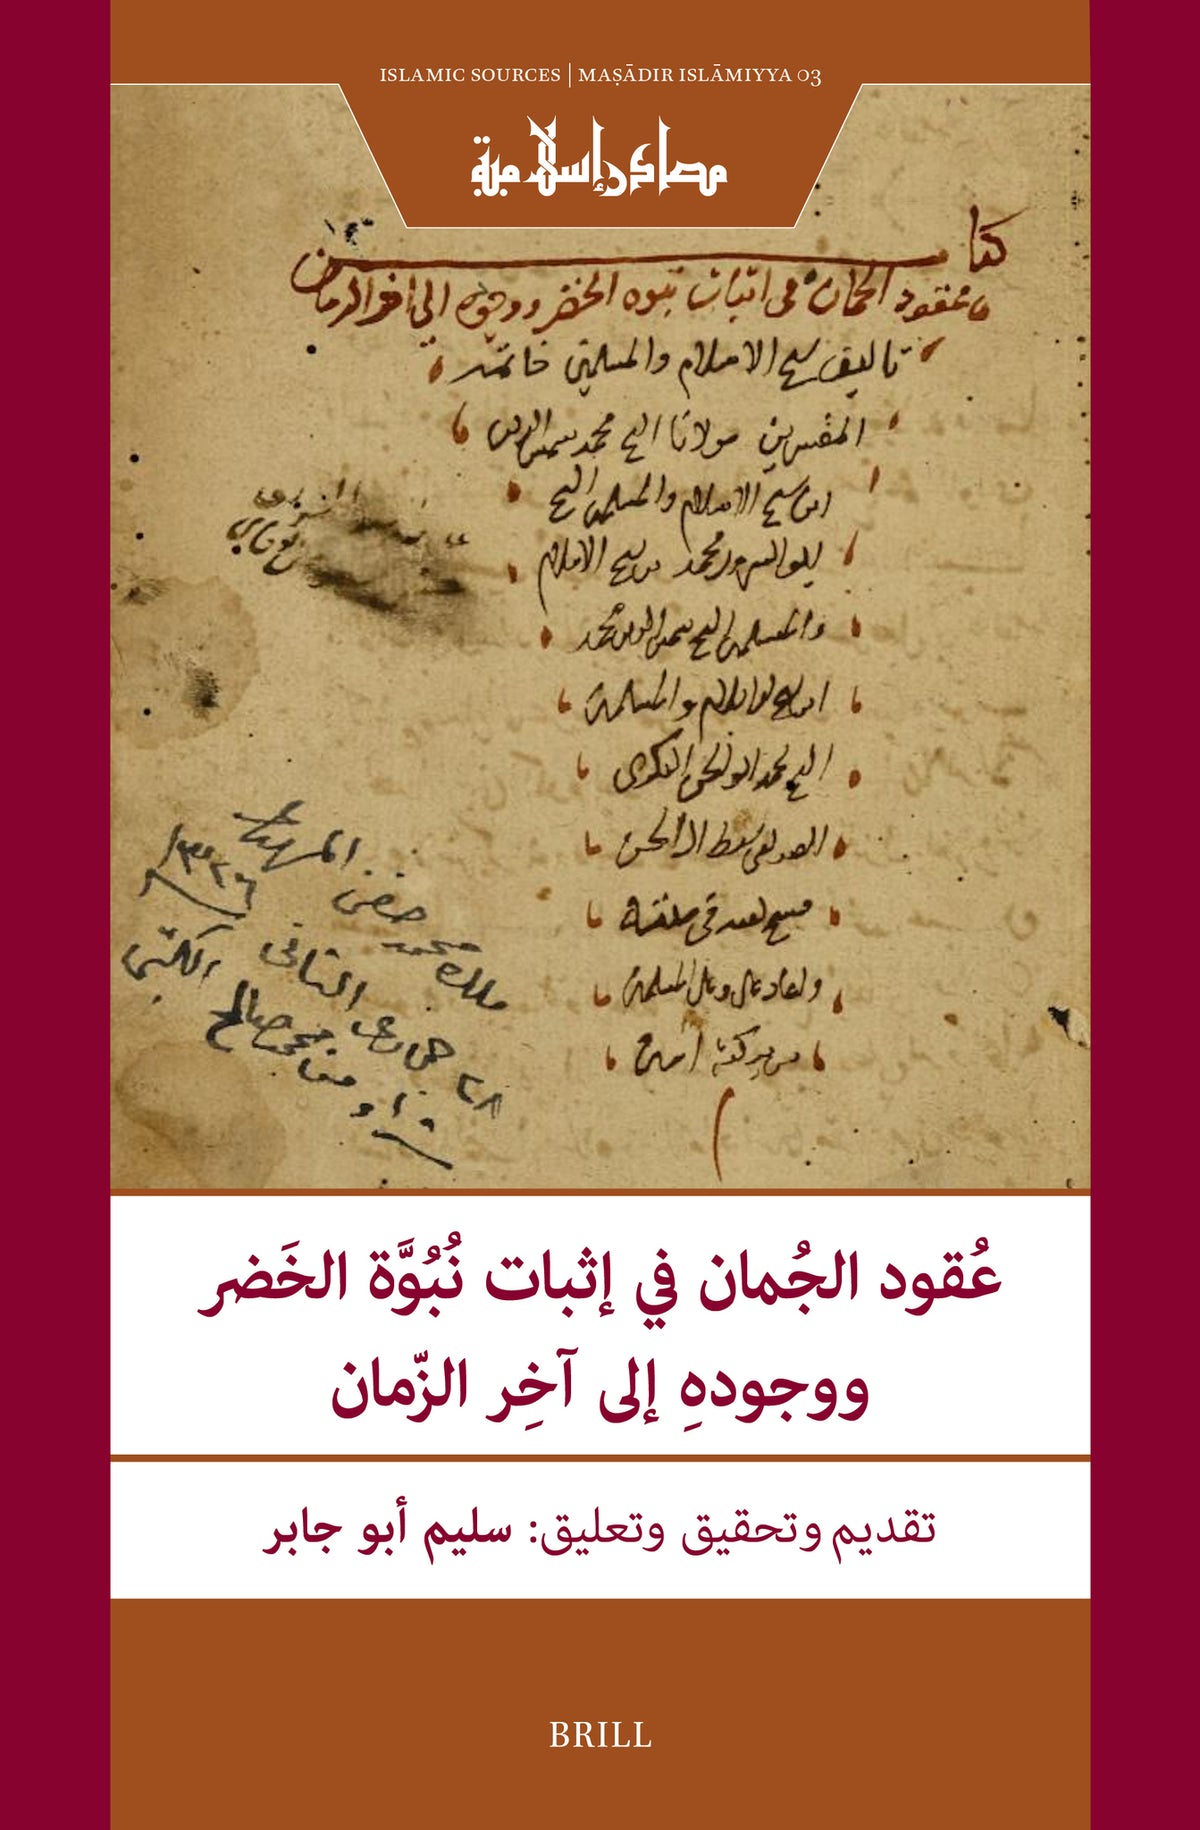 ISLAMIC SOURCES | MAṢĀDIR ISLĀMIYYA 03
مصادر إسلامية
كتاب
عقود الجمان فى اثبات نبوة الخضر ووجوده الى اخر الزمان
تاليف شيخ الاسلام والمسلمين خاتمة
المفسرين مولانا الشيخ محمد شمس الدين
ابن شيخ الاسلام والمسلمين الشيخ
ابو السرور محمد بن شيخ الاسلام
والمسلمين الشيخ شمس الدين محمد
ابن شيخ الاسلام والمسلمين
الشيخ محمد ابو الحسن البكرى
الصديقى سبط ال الحسن
فسح الله فى
واعاد على وعلى المسلمين
من بركته امين
ملك محمد حفنى المهدى
١٣٢٦
عُقود الجُمان في إثبات نُبُوَّة الخَضر
ووجودهِ إلى آخِر الزّمان
تقديم وتحقيق وتعليق: سليم أبو جابر
BRILL